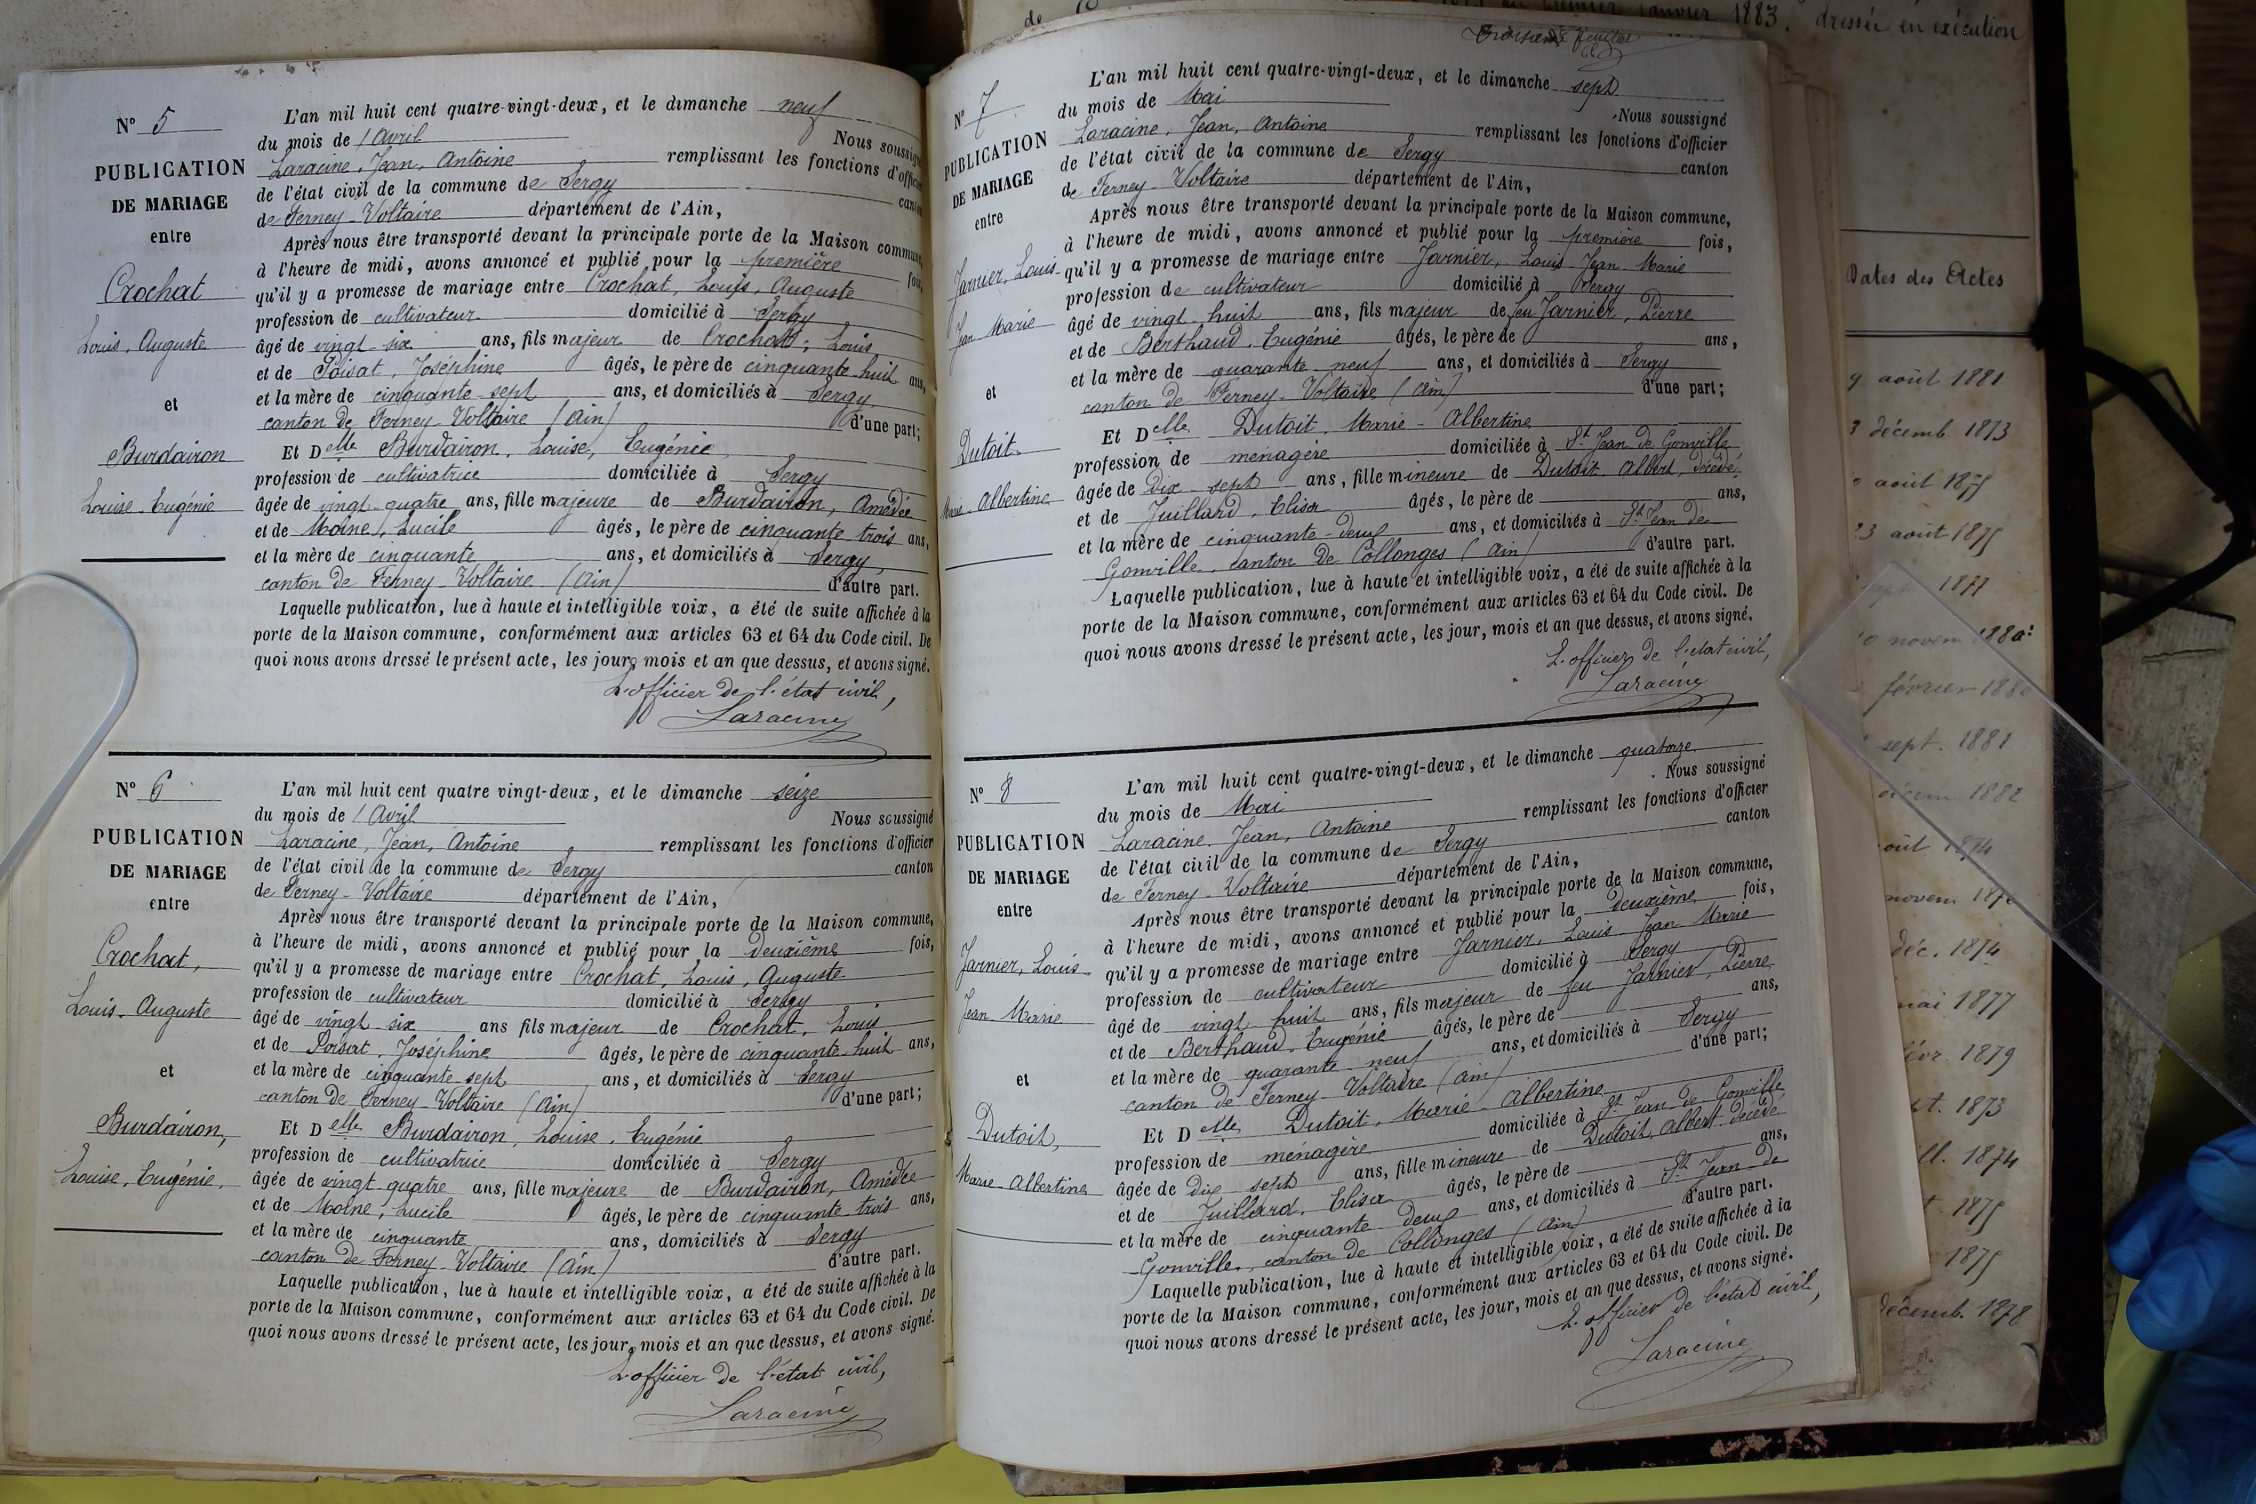 N° 5
PUBLICATION
DE MARIAGE
entre
Crochat
Louis, Auguste
et
Burdairon
Louise, Eugénie
L'an mil huit cent quatre-vingt-deux, et le dimanche neuf
du mois de Avril Nous soussigné
Laracine, Jean, Antoine remplissant les fonctions d'officier
de l'état civil de la commune de Sergy canton
de Ferney-Voltaire département de l'Ain,
Après nous être transporté devant la principale porte de la Maison commune,
à l'heure de midi, avons annoncé et publié pour la première fois,
qu'il y a promesse de mariage entre Crochat, Louis, Auguste
profession de cultivateur domicilié à Sergy
âgé de vingt-six ans, fils majeur de Crochat, Louis
et de Poisat, Joséphine âgés, le père de cinquante-huit ans,
et la mère de cinquante-sept ans, et domiciliés à Sergy
canton de Ferney-Voltaire (Ain) d'une part;
Et Delle Burdairon, Louise, Eugénie
profession de cultivatrice domiciliée à Sergy
âgée de vingt-quatre ans, fille majeure de Burdairon, Amédée
et de Moine, Lucile âgés, le père de cinquante trois ans,
et la mère de cinquante ans, et domiciliés à Sergy,
canton de Ferney-Voltaire (Ain) d'autre part.
Laquelle publication, lue à haute et intelligible voix, a été de suite affichée à la
porte de la Maison commune, conformément aux articles 63 et 64 du Code civil. De
quoi nous avons dressé le présent acte, les jour, mois et an que dessus, et avons signé.
L'officier de l'état civil,
Laracine
N° 6
PUBLICATION
DE MARIAGE
entre
Crochat,
Louis, Auguste
et
Burdairon,
Louise, Eugénie,
L'an mil huit cent quatre vingt-deux, et le dimanche seize
du mois de Avril Nous soussigné
Laracine, Jean, Antoine remplissant les fonctions d'officier
de l'état civil de la commune de Sergy canton
de Ferney-Voltaire département de l'Ain,
Après nous être transporté devant la principale porte de la Maison commune,
à l'heure de midi, avons annoncé et publié pour la deuxième fois,
qu'il y a promesse de mariage entre Crochat, Louis, Auguste
profession de cultivateur domicilié à Sergy
âgé de vingt-six ans fils majeur de Crochat, Louis
et de Poisat, Joséphine âgés, le père de cinquante-huit ans,
et la mère de cinquante-sept ans, et domiciliés à Sergy
canton de Ferney-Voltaire (Ain) d'une part;
Et Delle Burdairon, Louise, Eugénie
profession de cultivatrice domiciliée à Sergy
âgée de vingt quatre ans, fille majeure de Burdairon, Amédée
et de Moine, Lucile âgés, le père de cinquante trois ans,
et la mère de cinquante ans, domiciliés à Sergy
canton de Ferney-Voltaire (Ain) d'autre part.
Laquelle publication, lue à haute et intelligible voix, a été de suite affichée à la
porte de la Maison commune, conformément aux articles 63 et 64 du Code civil. De
quoi nous avons dressé le présent acte, les jour, mois et an que dessus, et avons signé.
L'officier de l'état civil,
Laracine
N° 7
PUBLICATION
DE MARIAGE
entre
Jarnier, Louis
Jean Marie
et
Dutoit
Marie-Albertine
L'an mil huit cent quatre-vingt-deux, et le dimanche sept
du mois de Mai Nous soussigné
Laracine, Jean, Antoine remplissant les fonctions d'officier
de l'état civil de la commune de Sergy canton
de Ferney-Voltaire département de l'Ain,
Après nous être transporté devant la principale porte de la Maison commune,
à l'heure de midi, avons annoncé et publié pour la première fois,
qu'il y a promesse de mariage entre Jarnier, Louis Jean Marie
profession de cultivateur domicilié à Sergy
âgé de vingt-huit ans, fils majeur de feu Jarnier, Pierre
et de Berthaud, Eugénie âgés, le père de ans,
et la mère de quarante-neuf ans, et domiciliés à Sergy
canton de Ferney-Voltaire (Ain) d'une part;
Et Delle Dutoit, Marie-Albertine
profession de ménagère domiciliée à St Jean de Gonville
âgée de dix-sept ans, fille mineure de Dutoit Albert, décédé
et de Juillard, Elisa âgés, le père de ans,
et la mère de cinquante-deux ans, et domiciliés à St Jean de
Gonville, canton de Collonges (Ain) d'autre part.
Laquelle publication, lue à haute et intelligible voix, a été de suite affichée à la
porte de la Maison commune, conformément aux articles 63 et 64 du Code civil. De
quoi nous avons dressé le présent acte, les jour, mois et an que dessus, et avons signé.
L'officier de l'état civil,
Laracine
N° 8
PUBLICATION
DE MARIAGE
entre
Jarnier, Louis
Jean Marie
et
Dutoit,
Marie-Albertine
L'an mil huit cent quatre-vingt-deux, et le dimanche quatorze
du mois de Mai Nous soussigné
Laracine, Jean, Antoine remplissant les fonctions d'officier
de l'état civil de la commune de Sergy canton
de Ferney-Voltaire département de l'Ain,
Après nous être transporté devant la principale porte de la Maison commune,
à l'heure de midi, avons annoncé et publié pour la deuxième fois,
qu'il y a promesse de mariage entre Jarnier, Louis Jean Marie
profession de cultivateur domicilié à Sergy
âgé de vingt huit ans, fils majeur de feu Jarnier, Pierre
et de Berthaud, Eugénie âgés, le père de ans,
et la mère de quarante neuf ans, et domiciliés à Sergy
canton de Ferney-Voltaire (Ain) d'une part;
Et Delle Dutoit, Marie-Albertine
profession de ménagère domiciliée à St Jean de Gonville
âgée de dix sept ans, fille mineure de Dutoit, Albert décédé
et de Juillard, Elisa âgés, le père de ans,
et la mère de cinquante deux ans, et domiciliés à St Jean de
Gonville, canton de Collonges (Ain) d'autre part.
Laquelle publication, lue à haute et intelligible voix, a été de suite affichée à la
porte de la Maison commune, conformément aux articles 63 et 64 du Code civil. De
quoi nous avons dressé le présent acte, les jour, mois et an que dessus, et avons signé.
L'officier de l'état civil,
Laracine
janvier 1883. dressée en exécution
Dates des Actes
août 1881
décemb. 1873
août 1875
23 août 1875
1877
novem 1880
février
sept. 1881
1882
1874
novem
déc. 1874
mai 1877
1879
1873
1874
1875
1875
décemb. 1878